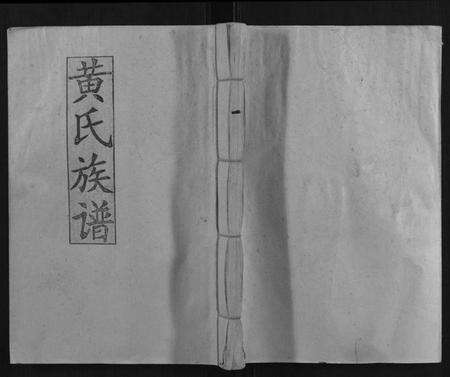 黄氏族谱